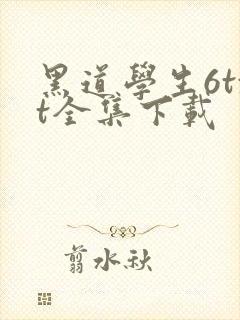 黑道學生6tx
t全集下載
翦水秋